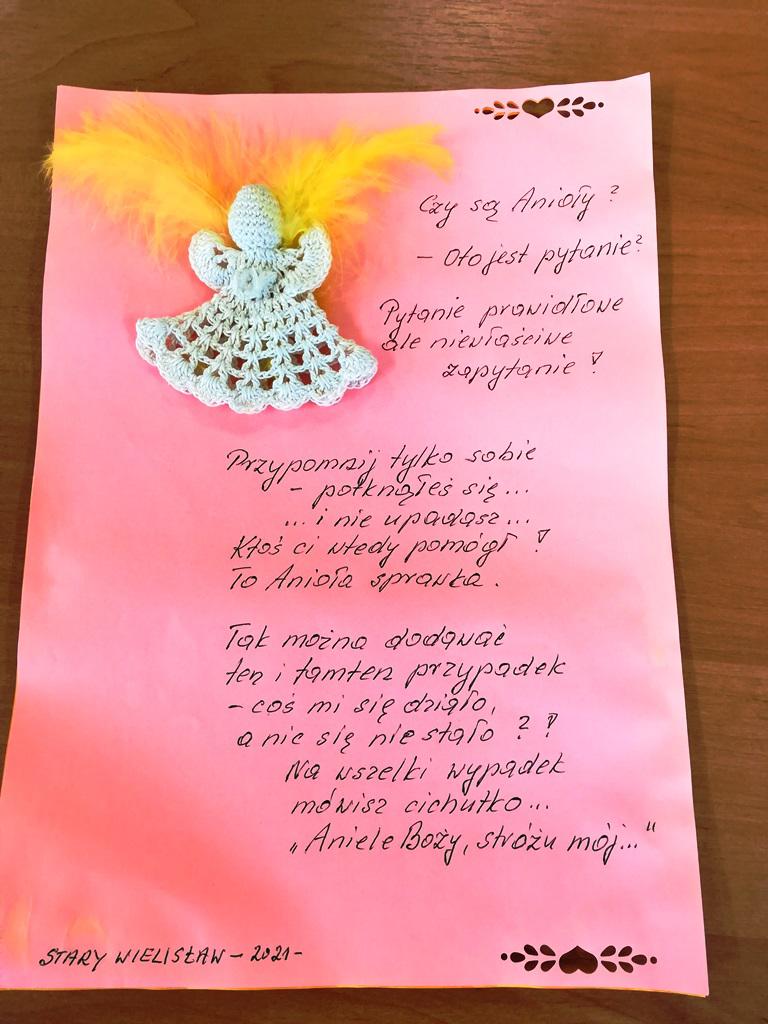 Czy są Anioły?
- Oto jest pytanie?
Pytanie prawidłowe
ale niewłaściwe
zapytanie!
Przypomnij tylko sobie
- potknąłeś się...
... i nie upadasz...
Ktoś ci wtedy pomógł!
To Anioła sprawka.
Tak można dodawać
ten i tamten przypadek
- coś mi się działo,
a nic się nie stało?!
Na wszelki wypadek
mówisz cichutko...
„Aniele Boży, stróżu mój..."
STARY WIELISŁAW - 2021 -